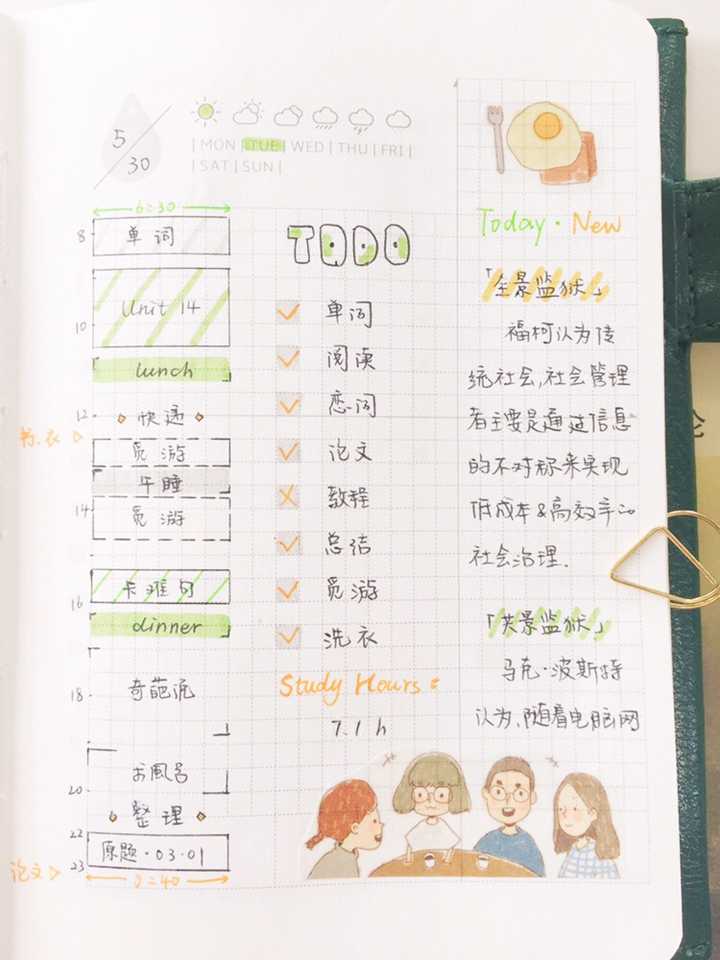 5/30
|MON|TUE|WED|THU|FRI|
|SAT|SUN|
6:30
8
单词
Unit 14
10
lunch
12
快递
书.衣
觅游
午睡
14
觅游
卡难句
16
dinner
18
奇葩说
お風呂
20
整理
22
原题·03·01
论文
23
0:40
TODO
单词
阅读
恋词
论文
教程
总结
觅游
洗衣
Study Hours:
7.1 h
Today·New
「全景监狱」
福柯认为传
统社会,社会管理
者主要是通过信息
的不对称来实现
低成本&高效率的
社会治理.
「共景监狱」
马克·波斯特
认为,随着电脑网
论